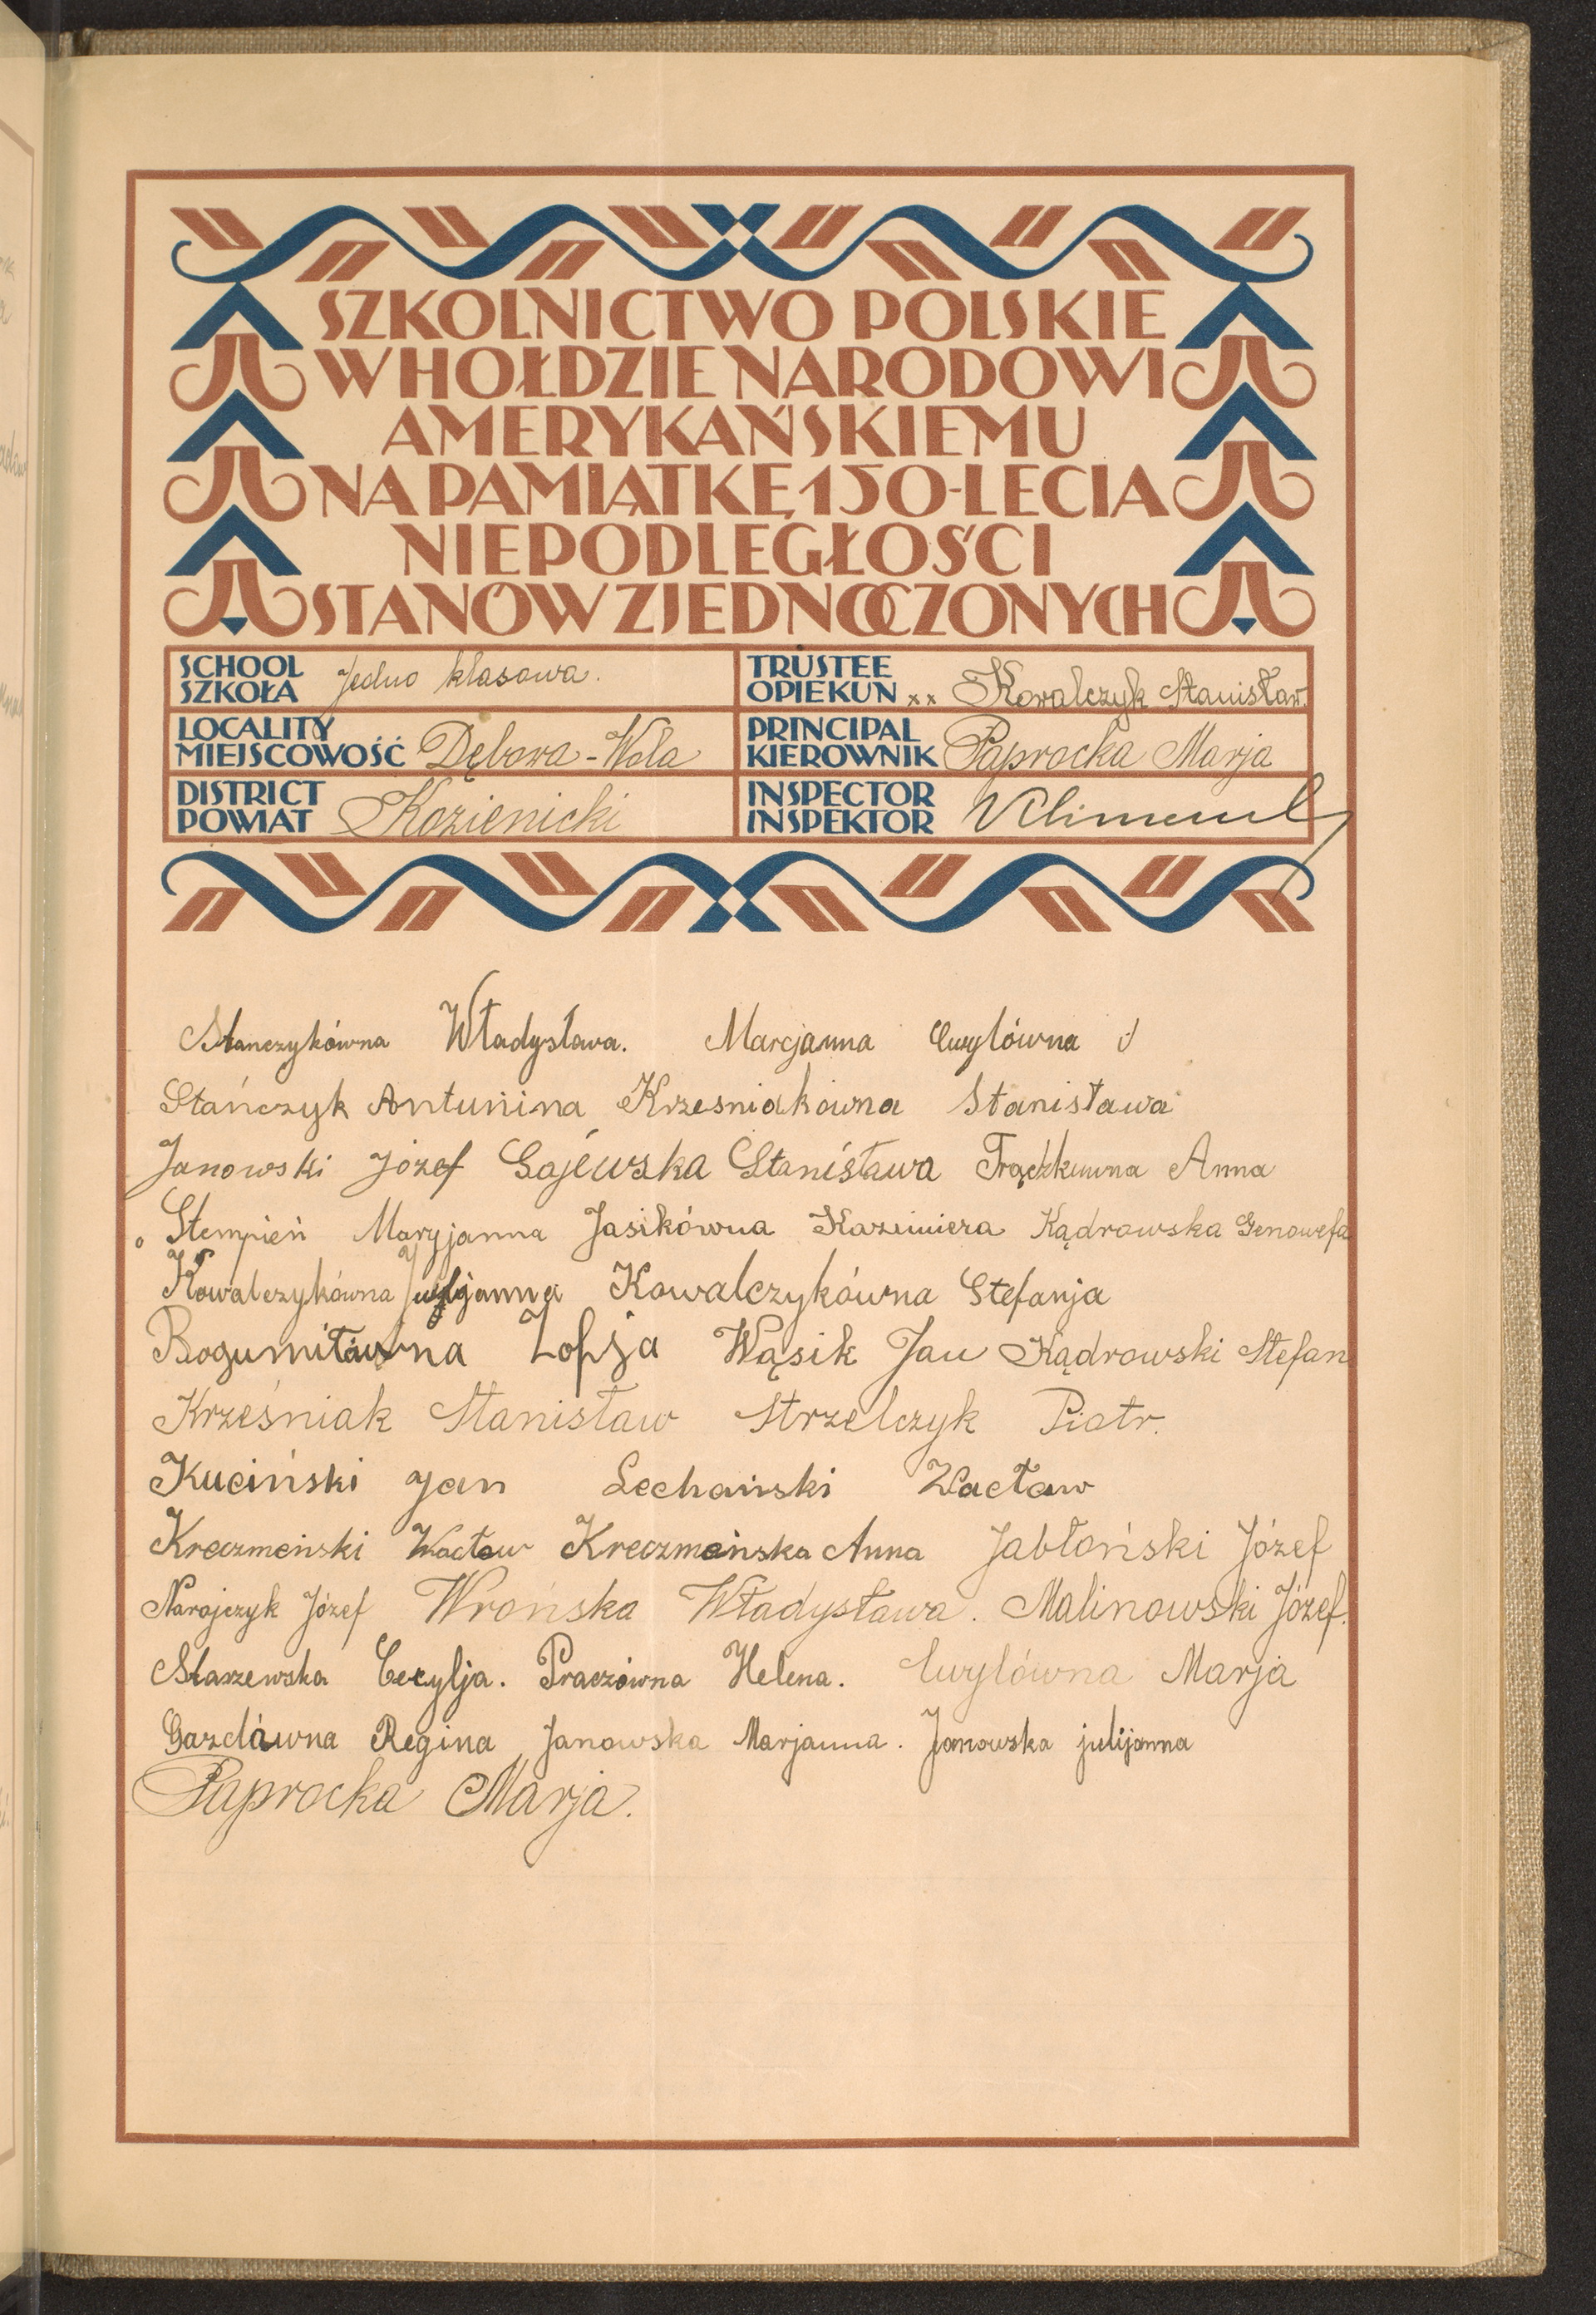 SZKOLNICTWO POLSKIE
W HOŁDZIE NARODOWI
AMERYKAŃSKIEMU
NA PAMIĄTKĘ 150-LECIA
NIEPODLEGŁOŚCI
STANÓW ZJEDNOCZONYCH
SCHOOL
SZKOŁA Jedno klasowa.
TRUSTEE
OPIEKUN xx Kowalczyk Stanisław.
LOCALITY
MIEJSCOWOŚĆ Dębowa-Wola
PRINCIPAL
KIEROWNIK Paprocka Marja
DISTRICT
POWIAT Kozienicki
INSPECTOR
INSPEKTOR
Stanczykówna Władysława. Marcjanna Cwylówna
Stańczyk Antunina Krzesniakówna Stanisława
Janowski Józef Gajewska Stanisława Anna
Stempień Maryjanna Jasikówna Kazimiera Kądrowska Genowefa
Kowalczykówna Kowalczykówna Stefanja
Zofja Wąsik Jan Kądrowski Stefan
Krześniak Stanisław Strzelczyk Piotr.
Kuciński Jan Lechański Wacław
Kreczmeński Wacław Kreczmańska Anna Jabłoński Józef
Narojczyk Józef Wrońska Władysława. Malinowski Józef.
Staszewska Cecylja. Praczówna Helena. Cwylówna Marja
Gazdówna Regina Janowska Marjanna. Janowska julijanna
Paprocka Marja.